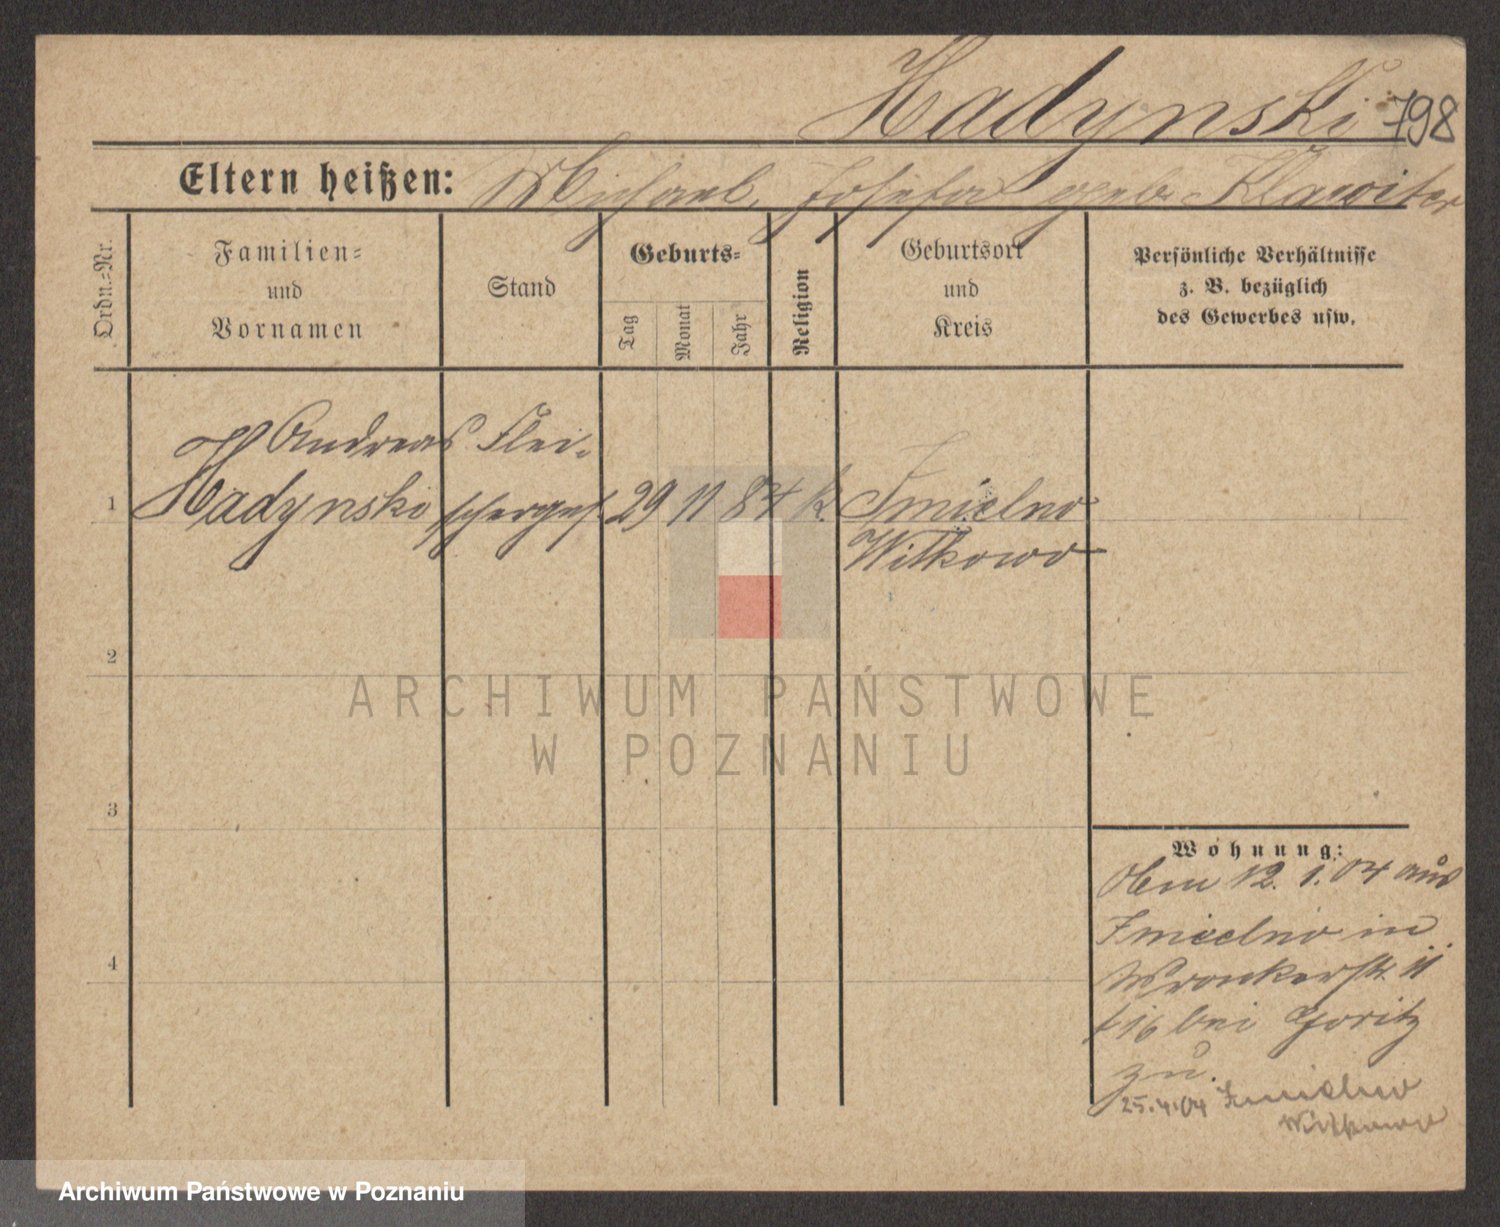 Hadynski 798
Eltern heißen: Michael, Josefa geb. Klawiter
Ordn.-Nr.
Familien-
und
Vornamen
Stand
Geburts-
Tag
Monat
Jahr
Religion
Geburtsort
und
Kreis
Persönliche Verhältnisse
z. B. bezüglich
des Gewerbes usw.
Andreas Flei-
1 Hadynski schergef. 29 11 84 k. Imielno
Witkowo
2
3
4
Wohnung:
12. 1. 04 aus
Imielno in
Wronkerstr. 11
bei Goritz
zu.
25.4.04 Imielno
Witkowo
ARCHIWUM PAŃSTWOWE
W POZNANIU
Archiwum Państwowe w Poznaniu